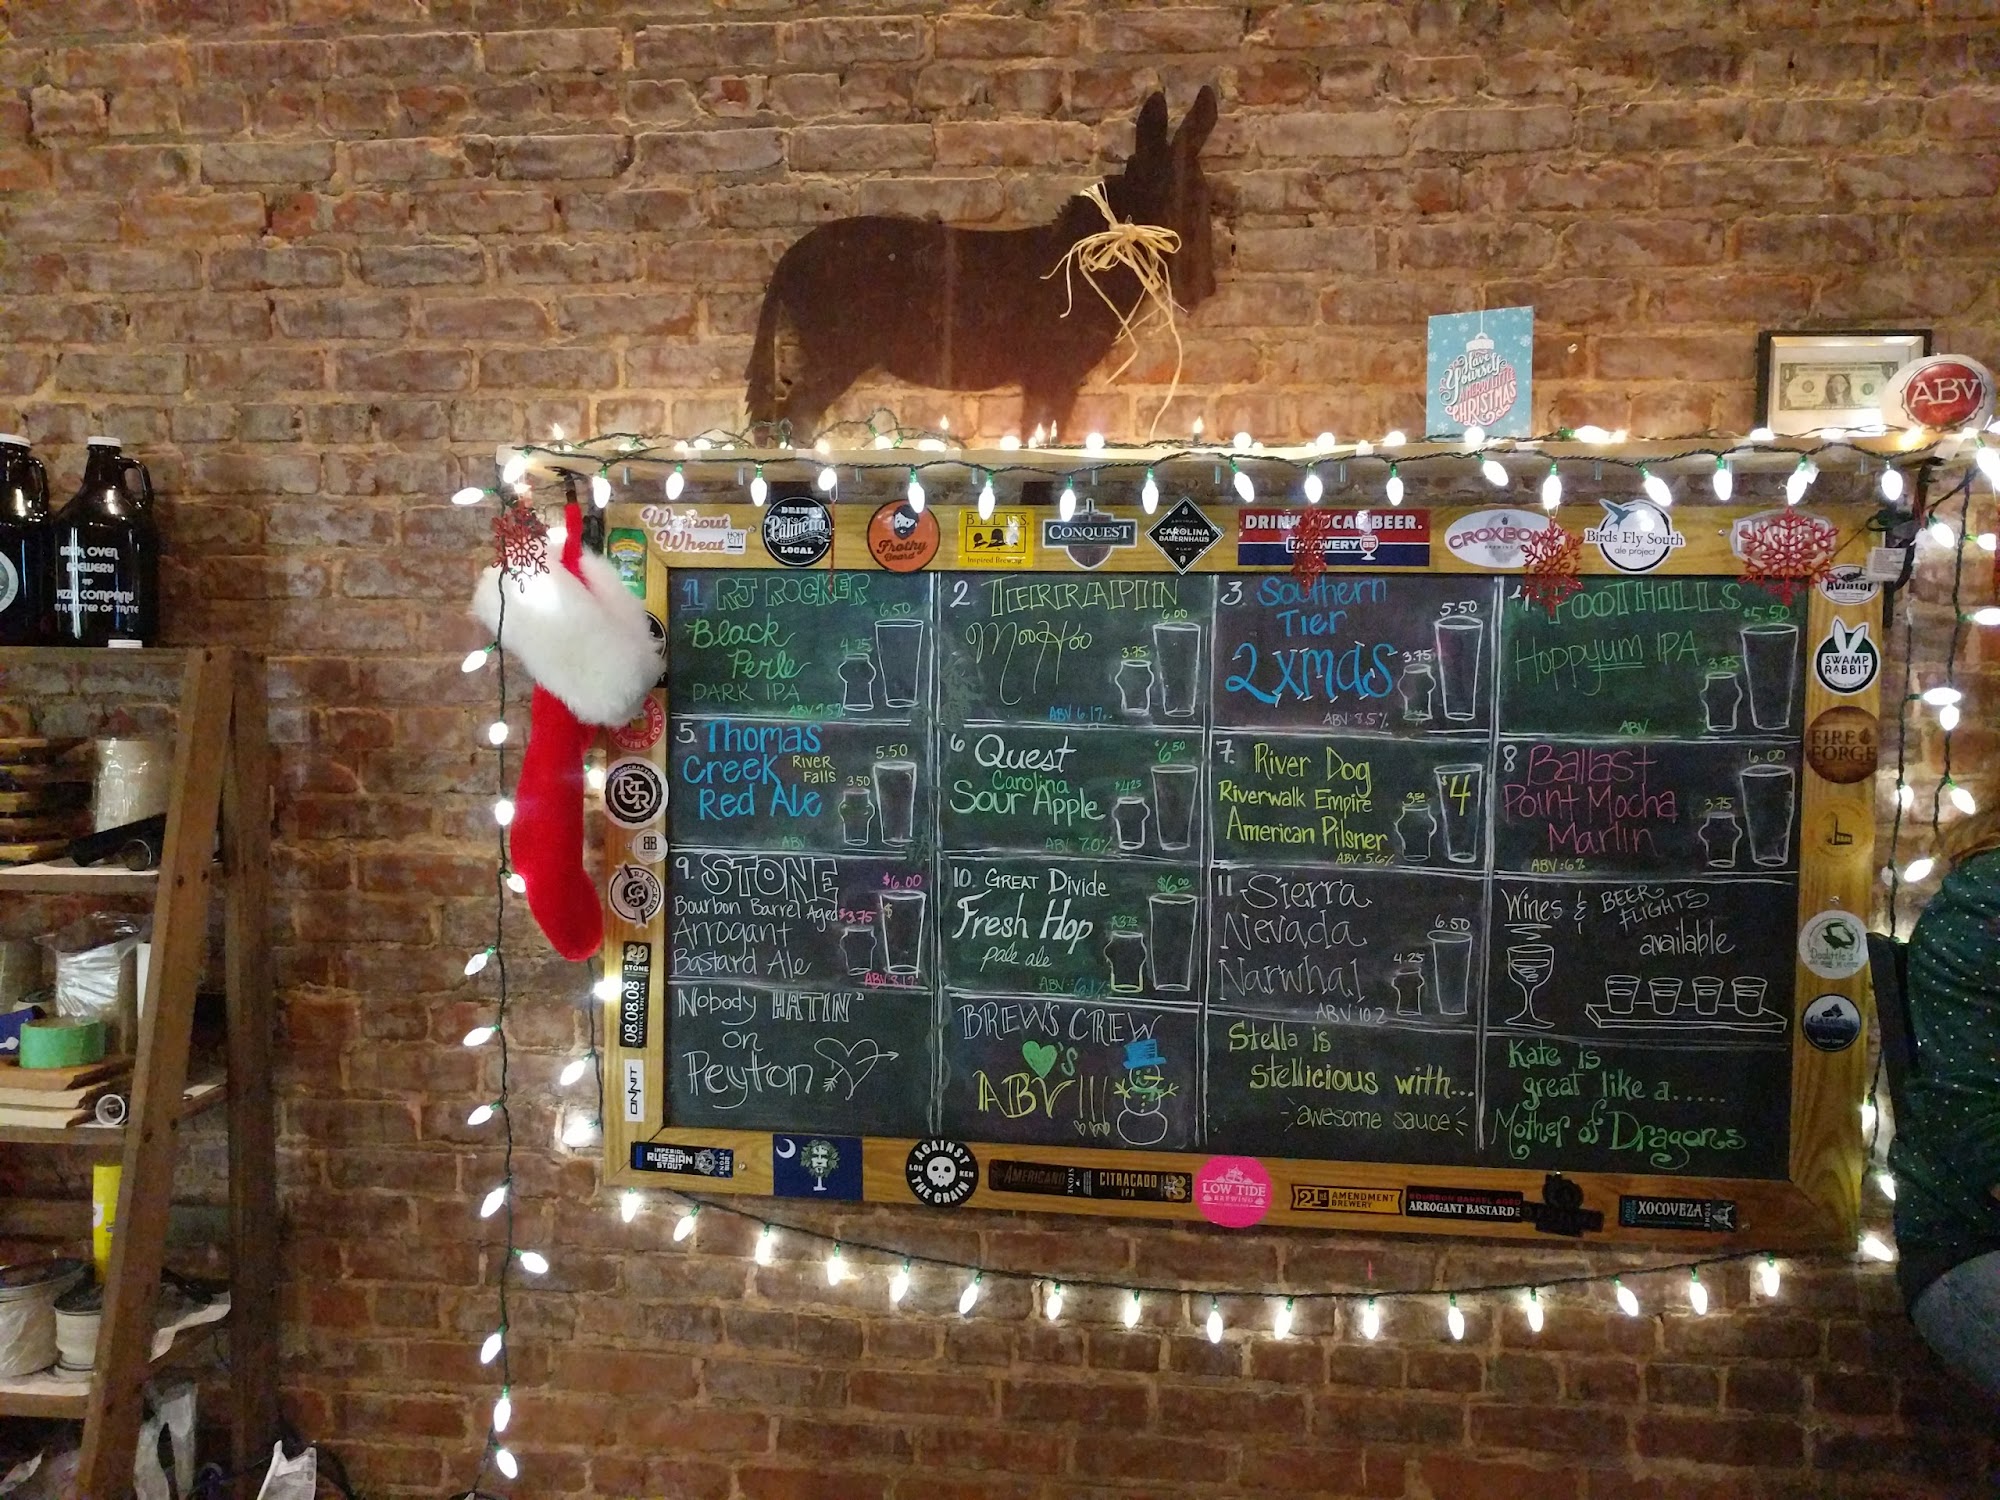 Have
Yourself
A MERRY LITTLE
CHRISTMAS
ABV
BRICK OVEN
BREWERY
AND
PIZZA COMPANY
A MATTER OF TASTE
Workout
Wheat
DRINK
Palmetto
LOCAL
Frothy
Beard
BELL'S
Inspired Brewing
CONQUEST
CAROLINA
BAUERNHAUS
DRINK LOCAL BEER.
BREWERY 85
CROXBON
Birds Fly South
ale project
Aviator
SWAMP
RABBIT
FIRE
FORGE
1 RJ ROCKER
6.50
Black
Perle
4.25
DARK IPA
ABV 9.5%
2 TERRAPIN
6.00
MooHoo
3.75
ABV 6.1%
3. Southern
Tier
5.50
2XMAS
3.75
ABV 8.5%
4 FOOTHILLS
$5.50
Hoppyum IPA
3.75
ABV
5. Thomas
Creek
River
Falls
Red Ale
5.50
3.50
ABV
6 Quest
$6.50
Carolina
Sour Apple
$4.25
ABV 7.0%
7. River Dog
Riverwalk Empire
American Pilsner
3.50
$4
ABV 5.6%
8 Ballast
Point Mocha
Marlin
6.00
3.75
ABV: 6%
9. STONE
$6.00
Bourbon Barrel Aged
$3.75
$
Arrogant
Bastard Ale
10. GREAT Divide
$6.00
Fresh Hop
pale ale
$3.75
ABV: 6.1%
11 Sierra
Nevada
Narwhal
6.50
4.25
ABV 10.2
Wines & BEER
FLIGHTS
available
Nobody HATIN'
on
Peyton
BREW'S CREW
'S
ABV!!!
Stella is
stellicious with...
awesome sauce
Kate is
great like a.....
Mother of Dragons
20
STONE
08.08.08
VERTICAL EPIC ALE
ONNIT
IMPERIAL
RUSSIAN
STOUT
STONE
AGAINST
THE GRAIN
LOU
KEN
AMERICANO
STONE
CITRACADO
IPA
LOW TIDE
BREWING
21st AMENDMENT
BREWERY
BOURBON BARREL AGED
ARROGANT BASTARD
XOCOVEZA
STONE